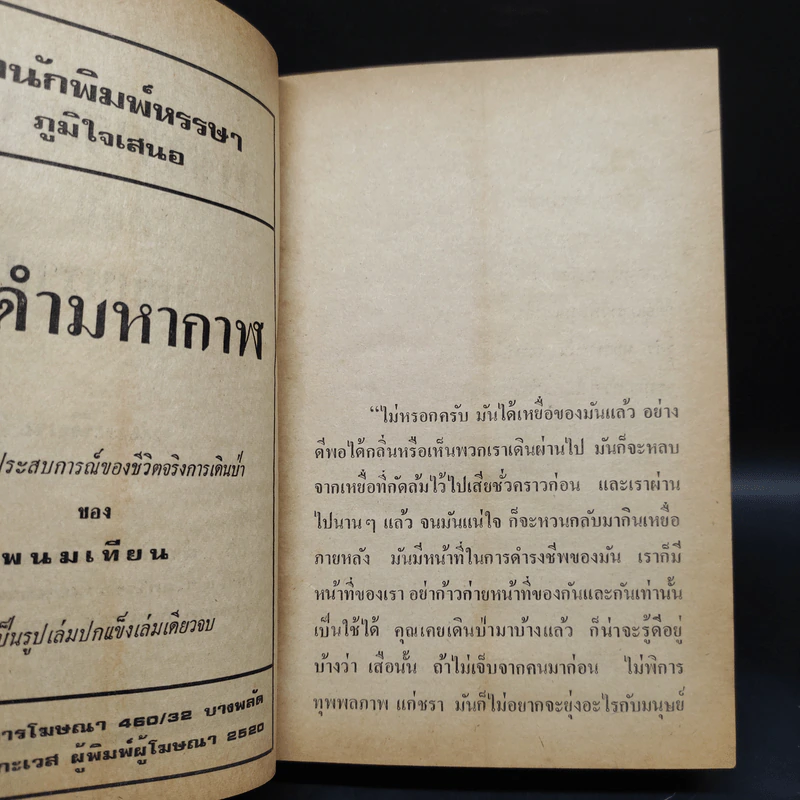 นักพิมพ์หรรษา
ภูมิใจเสนอ
ดำมหากาฬ
ประสบการณ์ของชีวิตจริงการเดินป่า
ของ
พนมเทียน
เป็นรูปเล่มปกแข็งเล่มเดียวจบ
การโฆษณา 460/32 บางพลัด
กะเวส ผู้พิมพ์ผู้โฆษณา 2520
“ไม่หรอกครับ มันได้เหยื่อของมันแล้ว อย่าง
ดีพอได้กลิ่นหรือเห็นพวกเราเดินผ่านไป มันก็จะหลบ
จากเหยื่อที่กัดล้มไว้ไปเสียชั่วคราวก่อน และเราผ่าน
ไปนานๆ แล้ว จนมันแน่ใจ ก็จะหวนกลับมากินเหยื่อ
ภายหลัง มันมีหน้าที่ในการดำรงชีพของมัน เราก็มี
หน้าที่ของเรา อย่าก้าวก่ายหน้าที่ของกันและกันเท่านั้น
เป็นใช้ได้ คุณเคยเดินป่ามาบ้างแล้ว ก็น่าจะรู้ดีอยู่
บ้างว่า เสือนั้น ถ้าไม่เจ็บจากคนมาก่อน ไม่พิการ
ทุพพลภาพ แก่ชรา มันก็ไม่อยากจะยุ่งอะไรกับมนุษย์